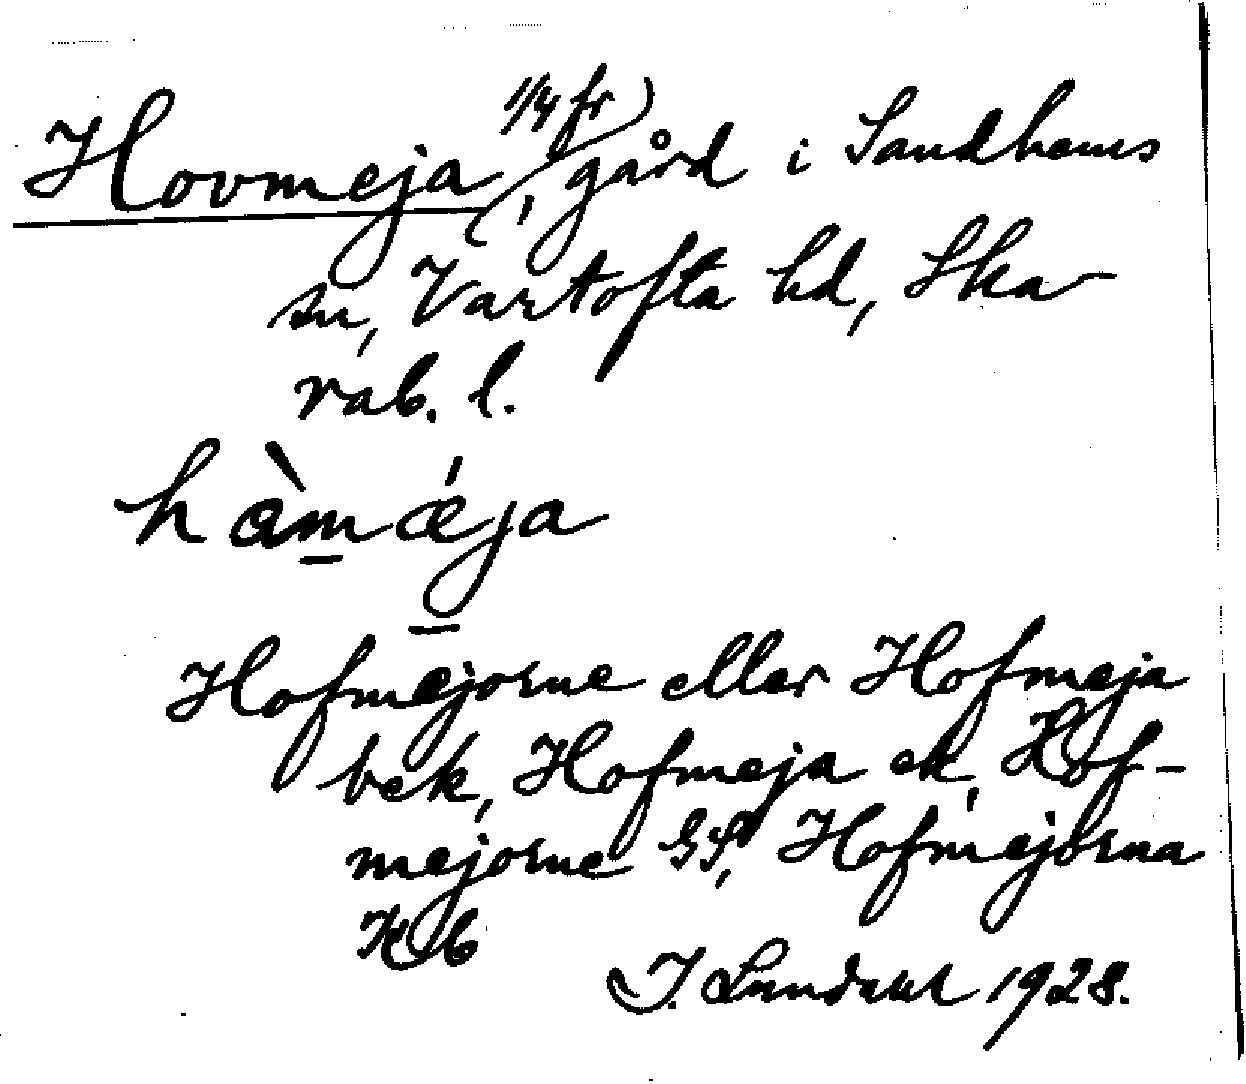 Hovmeja (1/4 fr), gård i Sandhems
sn, Vartofta hd, Ska-
rab. l.
hàmǽja
Hofmejorne eller Hofmeja
bek, Hofmeja ek, Hof-
mejorne GS, Hofmejorna
Kb
J. Sundahl 1928.